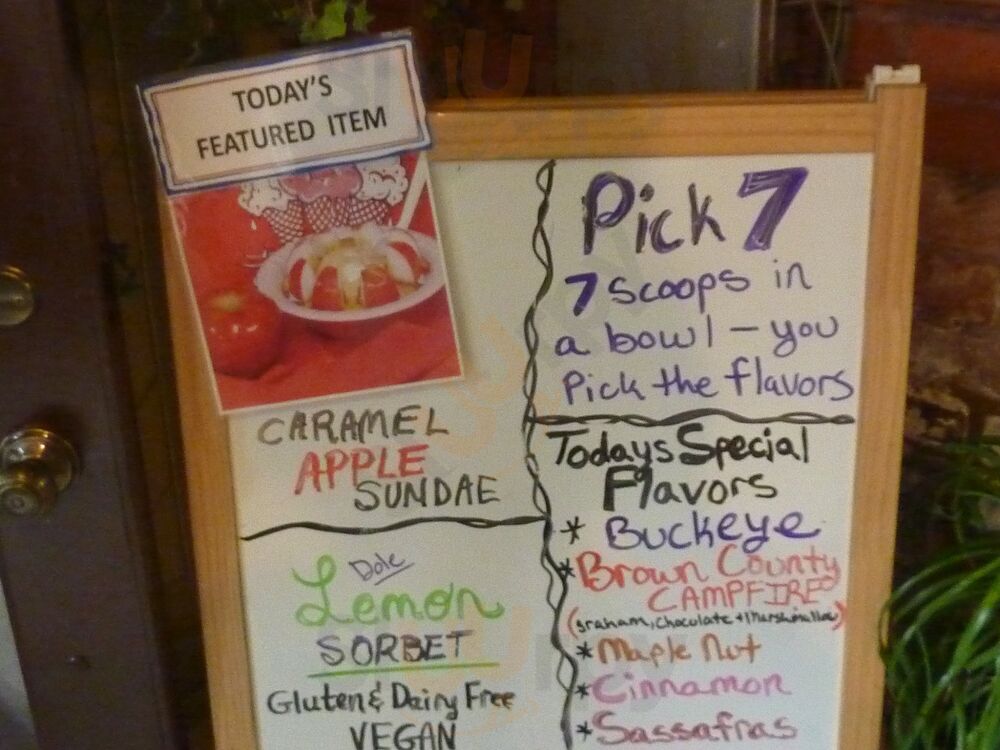 TODAY'S
FEATURED ITEM
CARAMEL
APPLE
SUNDAE
Dole
Lemon
SORBET
Gluten & Dairy Free
VEGAN
Pick 7
7 scoops in
a bowl - you
Pick the flavors
Todays Special
Flavors
* Buckeye
* Brown County
CAMPFIRE
(graham, chocolate + Marshmallow)
* Maple Nut
* Cinnamon
* Sassafras